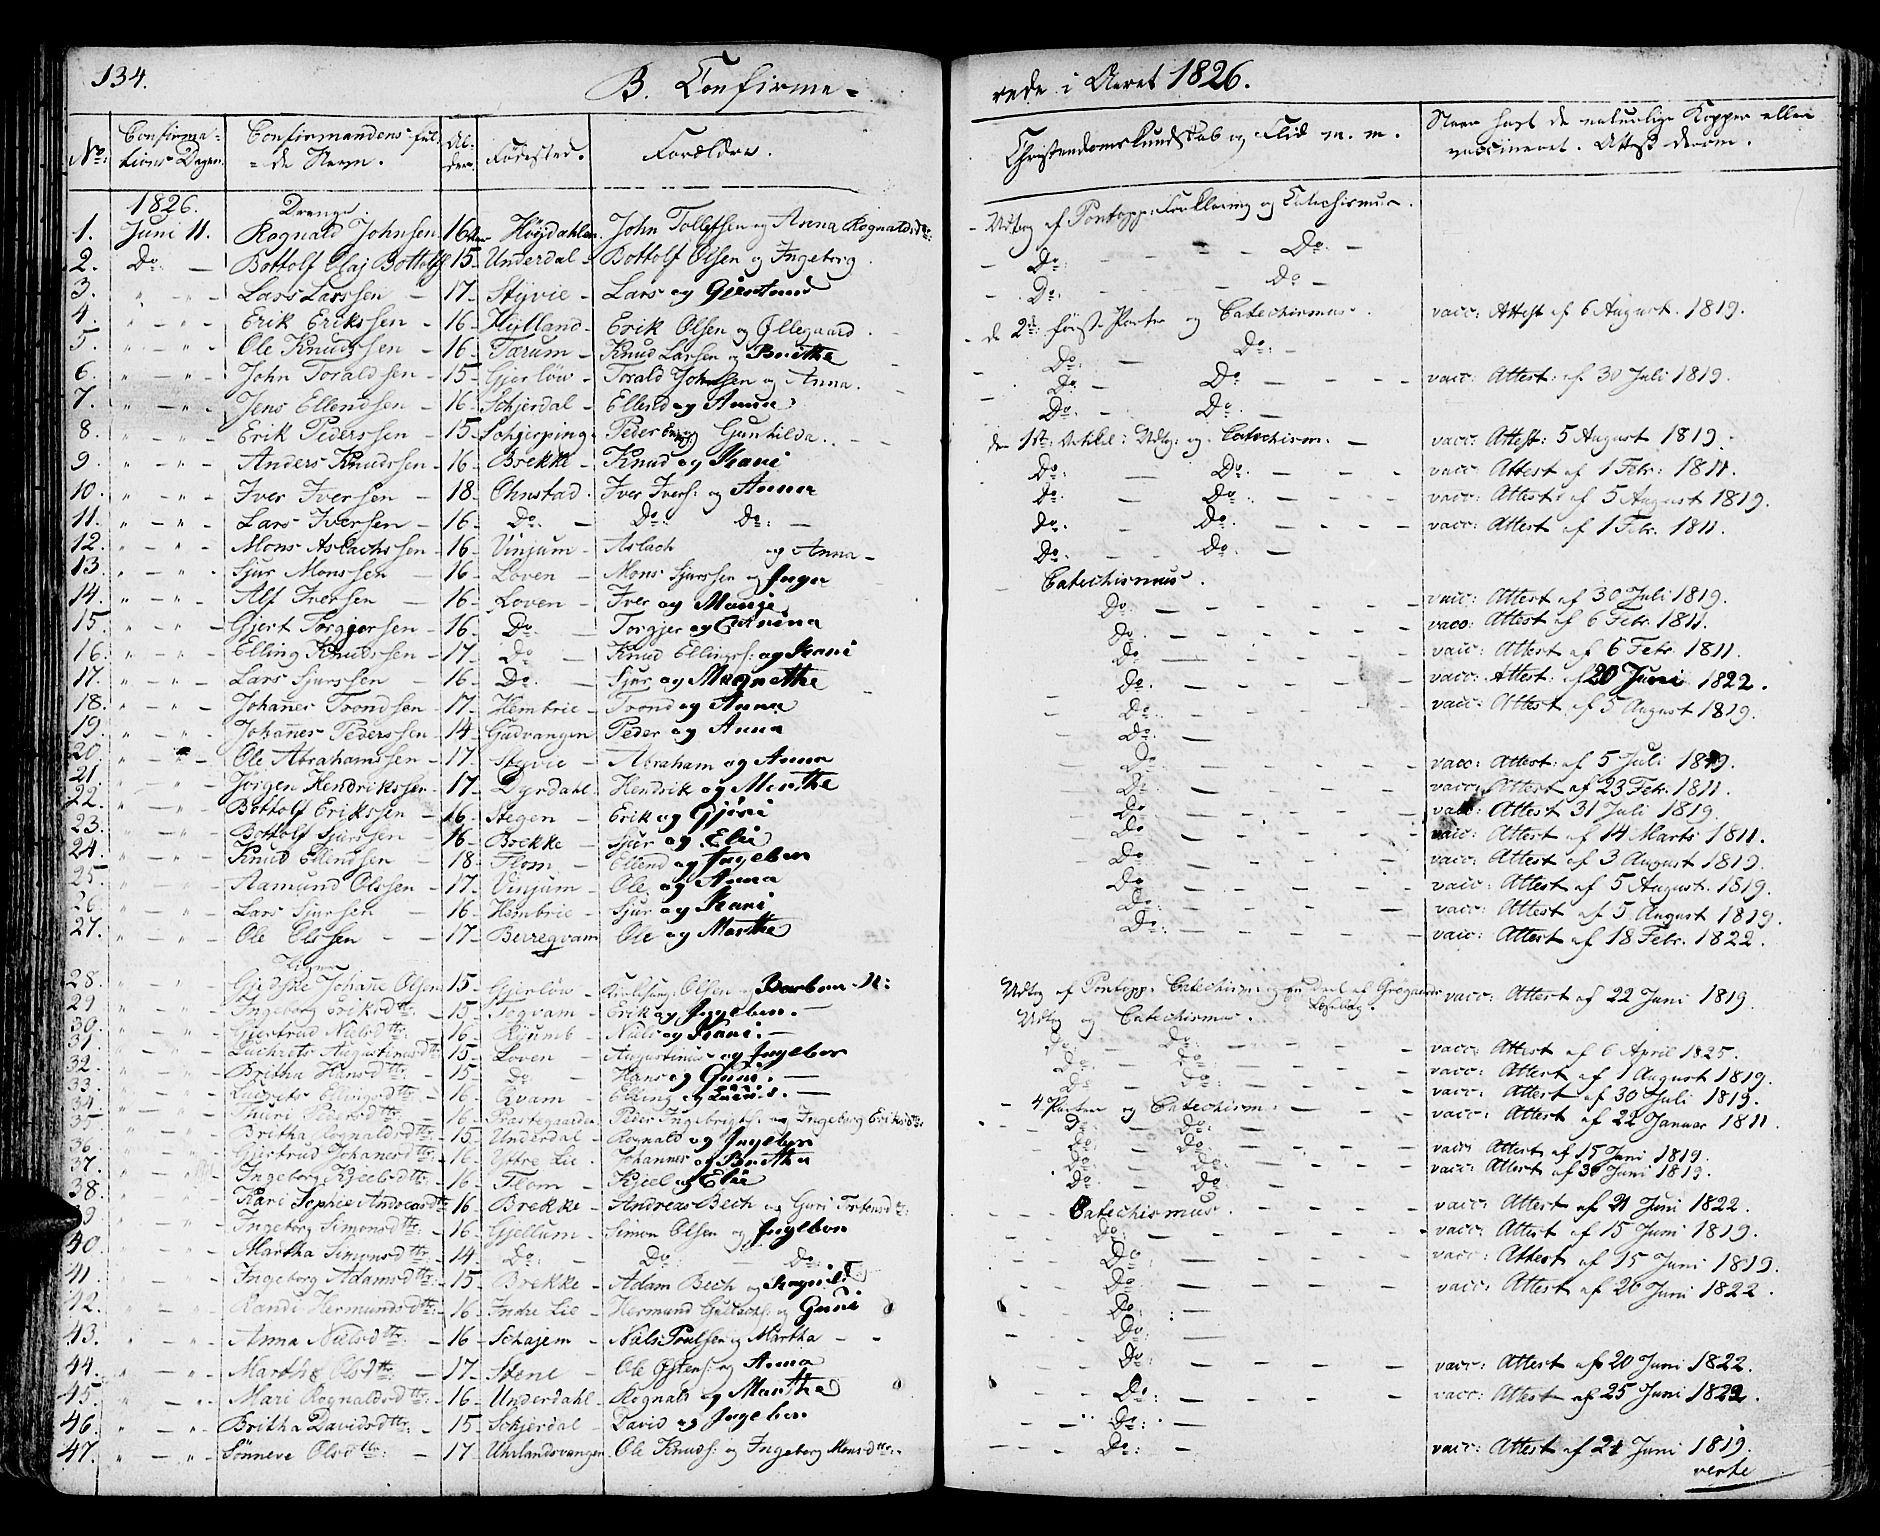 134.
B. Confirme=
rede i Aaret 1826.
No: Confirma=tions Dagen. Confirmandens ful=de Navn. Al=der. Fødested. Forældre. Christendomskundskab og Flid m. m. Naar havt de naturlige Kopper eller vaccineret. Attest derom.
1826. Drenge.
1. Juni 11. Rognald Johnsen 16 Høydahlen John Tollefsen og Anna Rognaldsdtr: Udtog af Pontopp: Forklaring og Catechismus.
2. Do: — Bottolf Olaj Bottolfs 15 Underdal Bottolf Olsen og Ingeborg. Do: Do: —
3. " — " Lars Larssen — 17 Styvie Lars og Giertrud Do: Do —
4. " — " Erik Erikssen 16 Hylland Erik Olsen og Øllegaard. de 2de første Parter og Catechismus. vacc: Attest af 6 August 1819.
5. " — " Ole Knudssen — 16 Tærum Knud Larsen og Brithe Do: — Do: —
6. " — " John Toraldsen 15 Gjerløw Torald Johnsen og Anna. Do: — Do: vacc: Attest: af 30 Juli 1819.
7. " — " Jens Ellendsen — 16 Schjerdal Ellend og Anna Do: — Do: —
8. " — " Erik Pederssen — 15 Schjerping Peder og Gunhilda. den 1ste Artikel: Udtog: og Catechism: — vacc: Attest: 5 August 1819.
9. " — " Anders Knudssen 16 Brekke Knud og Kari Do: — Do: vacc: Attest af 1 Febr: 1811.
10. " — " Iver Iversen — 18 Ohnstad. Iver Ivers: og Anna Do: Do: — vacc: Attest: af 5 August 1819.
11. " — " Lars Iversen — 16 Do: — Do: Do: — Do: Do: vacc: Attest af 1 Febr. 1811.
12. " — " Mons Aslachssen 16 Vinjum Aslach og Anna — Do: Do: —
13. " — " Sjur Monssen — 16 Loven Mons Sjurssen og Inga Catechismus.
14. " — " Alf Iversen — 16 Loven Iver og Marie Do: vacc: Attest af 30 Juli 1819.
15. " — " Gjert Torgjersen 16 Do: — Torgjer og Do: vacc: Attest af 6 Febr. 1811.
16. " — " Elling Knudssen 17 Do: — Knud Ellings: og Kari Do: vacc: Attest af 6 Febr. 1811.
17. " — " Lars Sjurssen — 16 Do: — Sjur og Magrethe Do: vacc: Attest: af 20 Juni 1822.
18. " — " Johañes Trondsen 17 Hembrie Trond og Anna Do: vacc: Attest: af 5 August 1819.
19. " — " Johañes Pederssen 14 Gudvangen Peder og Anna Do: —
20. " — " Ole Abrahamssen 17 Styvie Abraham og Anna Do: vacc: Attest: af 5 Juli 1819.
21. " — " Jørgen Hendrikssen 17 Dyrdahl Hendrik og Marthe Do: vacc: Attest af 23 Febr. 1811.
22. " — " Bottolf Erikssen — 16 Stegen Erik og Gjøri Do: vacc: Attest 31 Juli 1819.
23. " — " Bottolf Sjurssen — 16 Brekke Sjur og Elie Do: vacc: Attest af 14 Marts 1811.
24. " — " Knud Ellendsen — 18 Flom Ellend og Ingebor Do: vacc: Attest af 3 August 1819.
25. " — " Aamund Olssen 17 Vinjum Ole og Anna Do: vacc: Attest af 5 August. 1819.
26. " — " Lars Sjursen — 16 Hembrie Sjur og Kari Do: vacc: Attest af 5 August 1819.
27. " — " Ole Olssen — 17 Berregvam Ole og Marthe Do: vacc: Attest af 18 Febr. 1822.
Piger.
28. " — " Gjedske Johañe Olsen 15 Gjerløw Olsen og Barbra Udtog af Pontopp: Catechism: og en Deel af Grøgaards Læsebog. vacc: Attest af 22 Juni 1819.
29. " — " Ingeborg Eriksdtr: — 15 Togvam Erik og Ingebor. — Udtog og Catechismus.
30. " — " Gjertrud Nielsdtr: 16 Niels og Kari. — Do: Do: vacc: Attest af 6 April 1825.
31. " — " Lucrets Augustinusdtr: 15 Loven Augustinus og Ingebor Do: Do: vacc: Attest af 1 August 1819.
32. " — " Britha Hansdtr: 15 Do: — Hans og Guri. — Do: Do: vacc: Attest af 30 Juli 1819.
33. " — " Lucrets Ellingsdtr: 16 Qvam Elling og — 4 Parter og Catechism: vacc: Attest af 22 Januar 1811.
34. " — " Thuri Pedersdtr: 16 Præstegaarden Peter Ingebrigts: og Ingeborg Eriksdtr: Do: Do: —
35. " — " Britha Rognaldsdtr: 15 Underdal Rognald og Ingebor Do: Do: vacc: Attest af 15 Juni 1819.
36. " — " Gjertrud Johañesdtr: 16 Yttre Lie. Johannes og Brithe Do: Do: — vacc: Attest af 30 Juni 1819.
37. " — " Ingeborg Kjeelsdtr: 16 Flom Kjeel og Elie Do: Do: —
38. " — " Kari Sophie Andreasdtr 16 Brekke Andreas Bech og Guri Torbensdtr: Catechismus. vacc: Attest af 21 Juni 1822.
39 " — " Ingeborg Simonsdtr: 16 Gjellum Simon Olsen og Ingebor Do: vacc: Attest af 15 Juni 1819.
40. " — " Martha Simonsdtr: 14 Do: Do: — Do: Do: vacc: Attest af 15 Juni 1819.
41. " — " Ingeborg Adamsdtr: 15 Brekke Adam Bech og Ragnild Do: vacc: Attest af 20 Juni 1822.
42. " — " Randi Hermundsdtr: 16 Indre Lie Hermund og Guri Do: —
43. " — " Anna Nielsdtr: 16 Schajem Niels Poulsen og Martha Do: —
44. " — " Marthe Olsdtr: — 17 Stene Ole Østens: og Anna Do: vacc: Attest af 20 Juni 1822.
45. " — " Mari Rognaldsdtr: 16 Underdahl Rognald og Marthe Do: vacc: Attest af 25 Juni 1822.
46. " — " Britha Davidsdtr: 15 Schjerdal David og Ingebor Do: —
47. " — " Sønneve Olsdtr: — 17 Uhrlandsvangen Ole Knuds: og Ingeborg Monsdtr: Do: — vacc: Attest af 21 Juni 1819.
verte